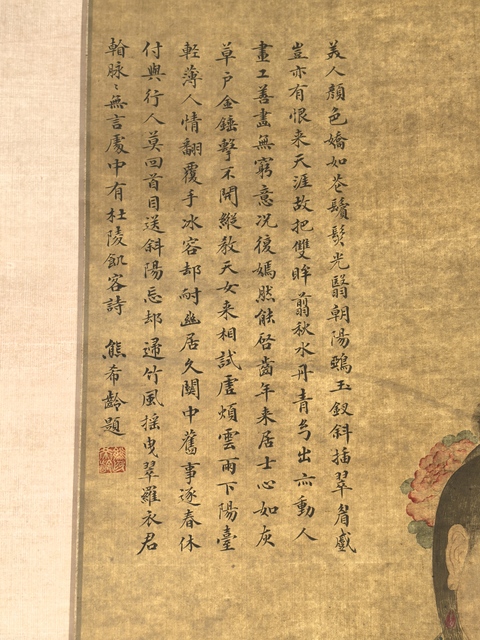 美人顏色嬌如花鬢髮光翳朝陽鵶玉釵斜插翠眉蹙
豈亦有恨来天涯故把雙眸翦秋水丹青與出亦動人
畫工善盡無窮意况復嫣然能啓齒年来居士心如灰
草戶金錘擊不開縱教天女来相試虛煩雲雨下陽臺
輕薄人情翻覆手冰容却耐幽居久關中舊事逐春休
付與行人莫回首目送斜陽忘却歸竹風搖曳翠羅衣君
翰脉〻無言處中有杜陵飢客詩 熊希齡題